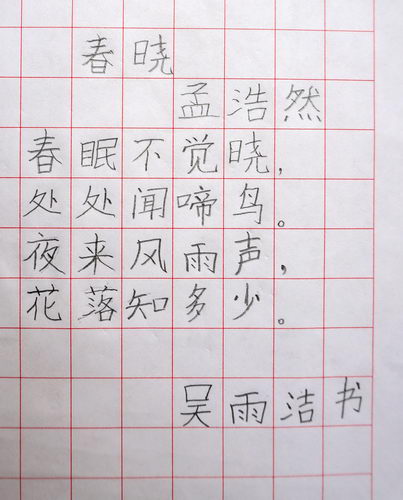 春晓
孟浩然
春眠不觉晓,
处处闻啼鸟。
夜来风雨声,
花落知多少。
吴雨洁书